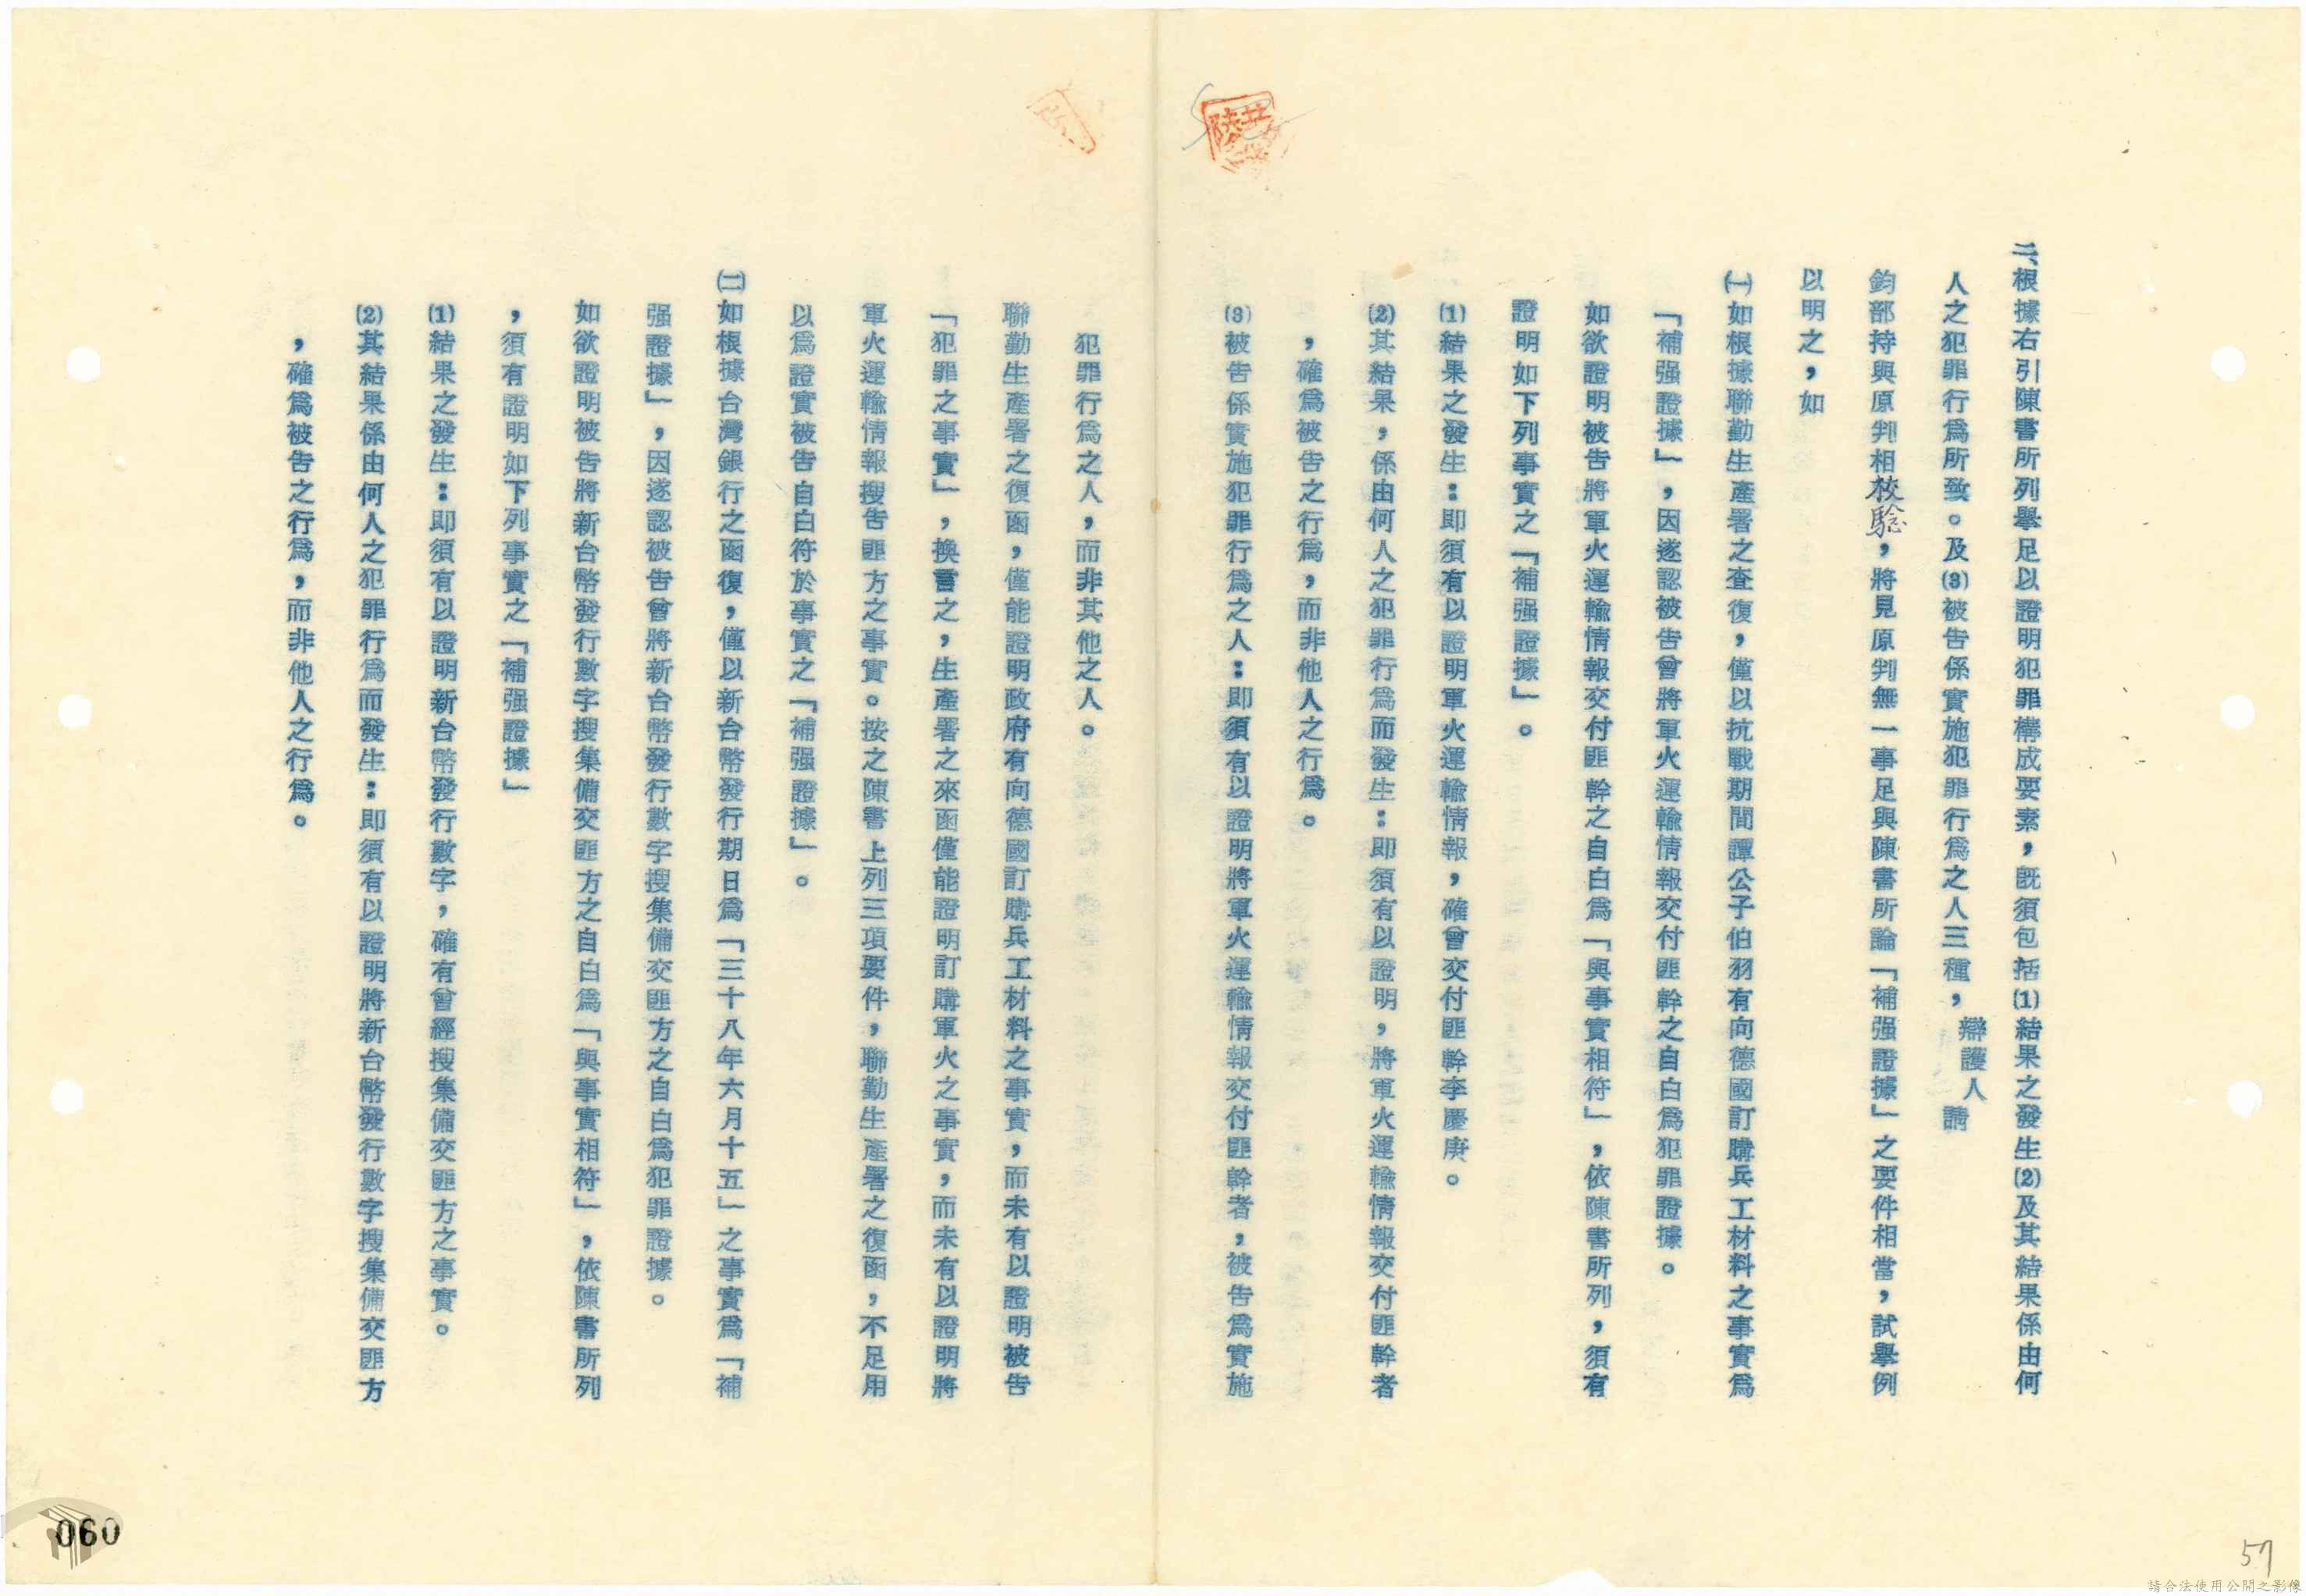 二、根據右引陳書所列舉足以證明犯罪構成要素，既須包括(1)結果之發生(2)及其結果係由何
人之犯罪行為所致。及(3)被告係實施犯罪行為之人三種，辯護人請
鈞部持與原判相校驗，將見原判無一事足與陳書所論「補强證據」之要件相當，試舉例
以明之，如
㈠如根據聯勤生產署之查復，僅以抗戰期間譚公子伯羽有向德國訂購兵工材料之事實爲
「補强證據」，因遂認被告曾將軍火運輸情報交付匪幹之自白爲犯罪證據。
如欲證明被告將軍火運輸情報交付匪幹之自白爲「與事實相符」，依陳書所列，須有
證明如下列事實之「補强證據」。
(1)結果之發生：即須有以證明軍火運輸情報，確曾交付匪幹李慶庚。
(2)其結果，係由何人之犯罪行爲而發生：即須有以證明，將軍火運輸情報交付匪幹者
，確爲被告之行爲，而非他人之行爲。
(3)被告係實施犯罪行爲之人：即須有以證明將軍火運輸情報交付匪幹者，被告爲實施
犯罪行爲之人，而非其他之人。
聯勤生產署之復函，僅能證明政府有向德國訂購兵工材料之事實，而未有以證明被告
「犯罪之事實」，換言之，生產署之來函僅能證明訂購軍火之事實，而未有以證明將
軍火運輸情報搜告匪方之事實。按之陳書上列三項要件，聯勤生產署之復函，不足用
以爲證實被告自白符於事實之「補强證據」。
㈡如根據台灣銀行之函復，僅以新台幣發行期日爲「三十八年六月十五」之事實爲「補
强證據」，因遂認被告曾將新台幣發行數字搜集備交匪方之自白爲犯罪證據。
如欲證明被告將新台幣發行數字搜集備交匪方之自白爲「與事實相符」，依陳書所列
，須有證明如下列事實之「補强證據」
(1)結果之發生：即須有以證明新台幣發行數字，確有曾經搜集備交匪方之事實。
(2)其結果係由何人之犯罪行爲而發生：即須有以證明將新台幣發行數字搜集備交匪方
，確爲被告之行爲，而非他人之行爲。
060
57
請合法使用公開之影像